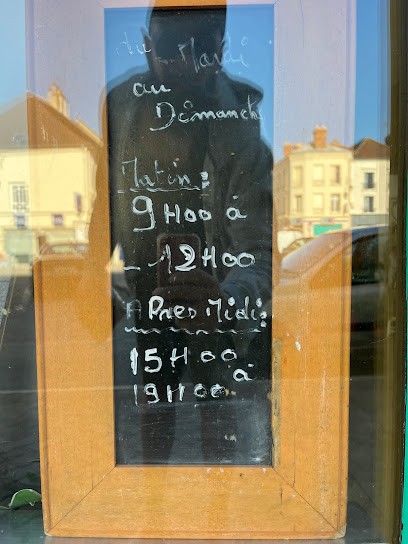 Du Mardi
au
Dimanche
Matin :
9H00 à
- 12H00
A Pres Midi :
15H00
à
19H00